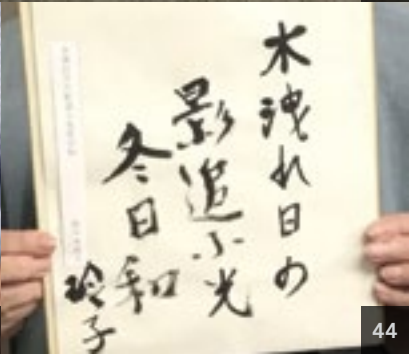 木洩れ日の
影追ふ光
冬日和
玲子
44